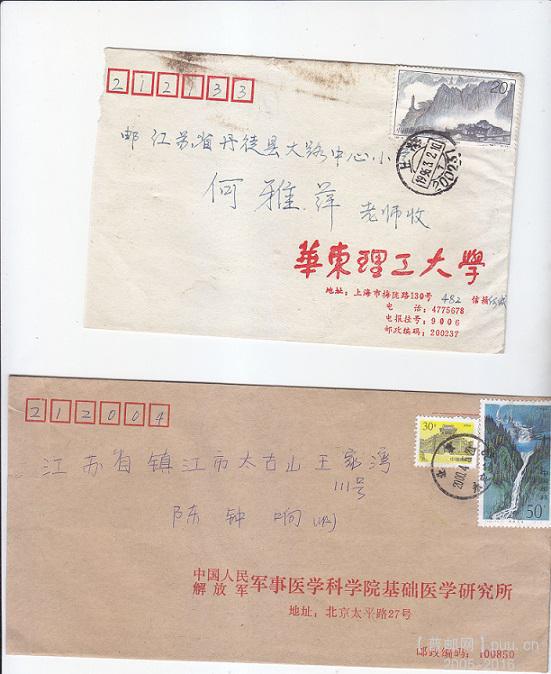 212133
20分
邮 江苏省丹徒县大路中心小
何雅萍 老师收
上海
1996.3.2.10
200237
華東理工大學
地址：上海市梅陇路130号 482 信箱
电 话：4775678
电报挂号：9006
邮政编码：200237
212004
30分
50分
江苏省镇江市太古山王家湾
111号
陈钟响(收)
中国人民
解放军 军事医学科学院基础医学研究所
地址：北京太平路27号
邮政编码：100850
puu.cn
2005-2016